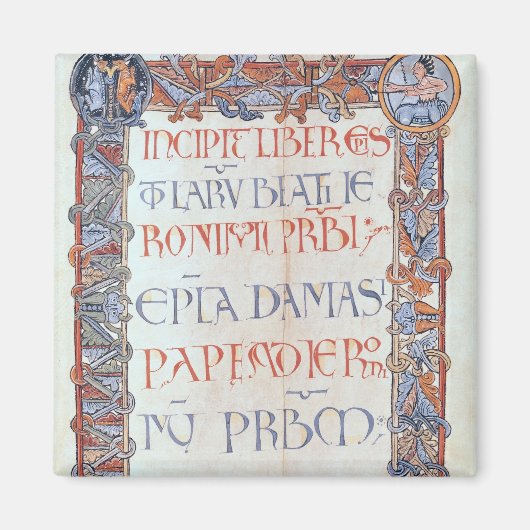 INCIPIT LIBER EPI
STLARV BEATI IE
RONIMI PRBI;
EPLA DAMASI
PAPE AD IERO
NŪ PRBM;